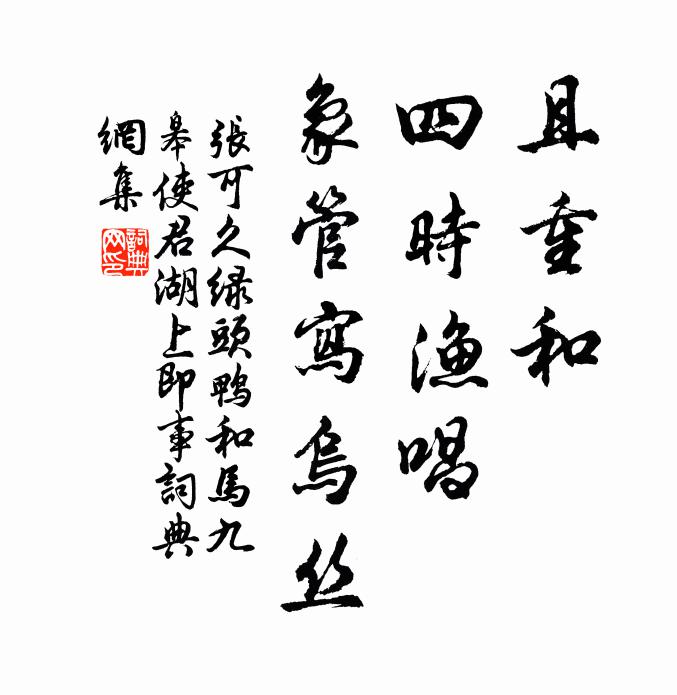 且重和
四時漁唱
象管寫烏丝
張可久绿頭鴨和馬九
皋使君湖上即事詞典
網集
詞典
网印